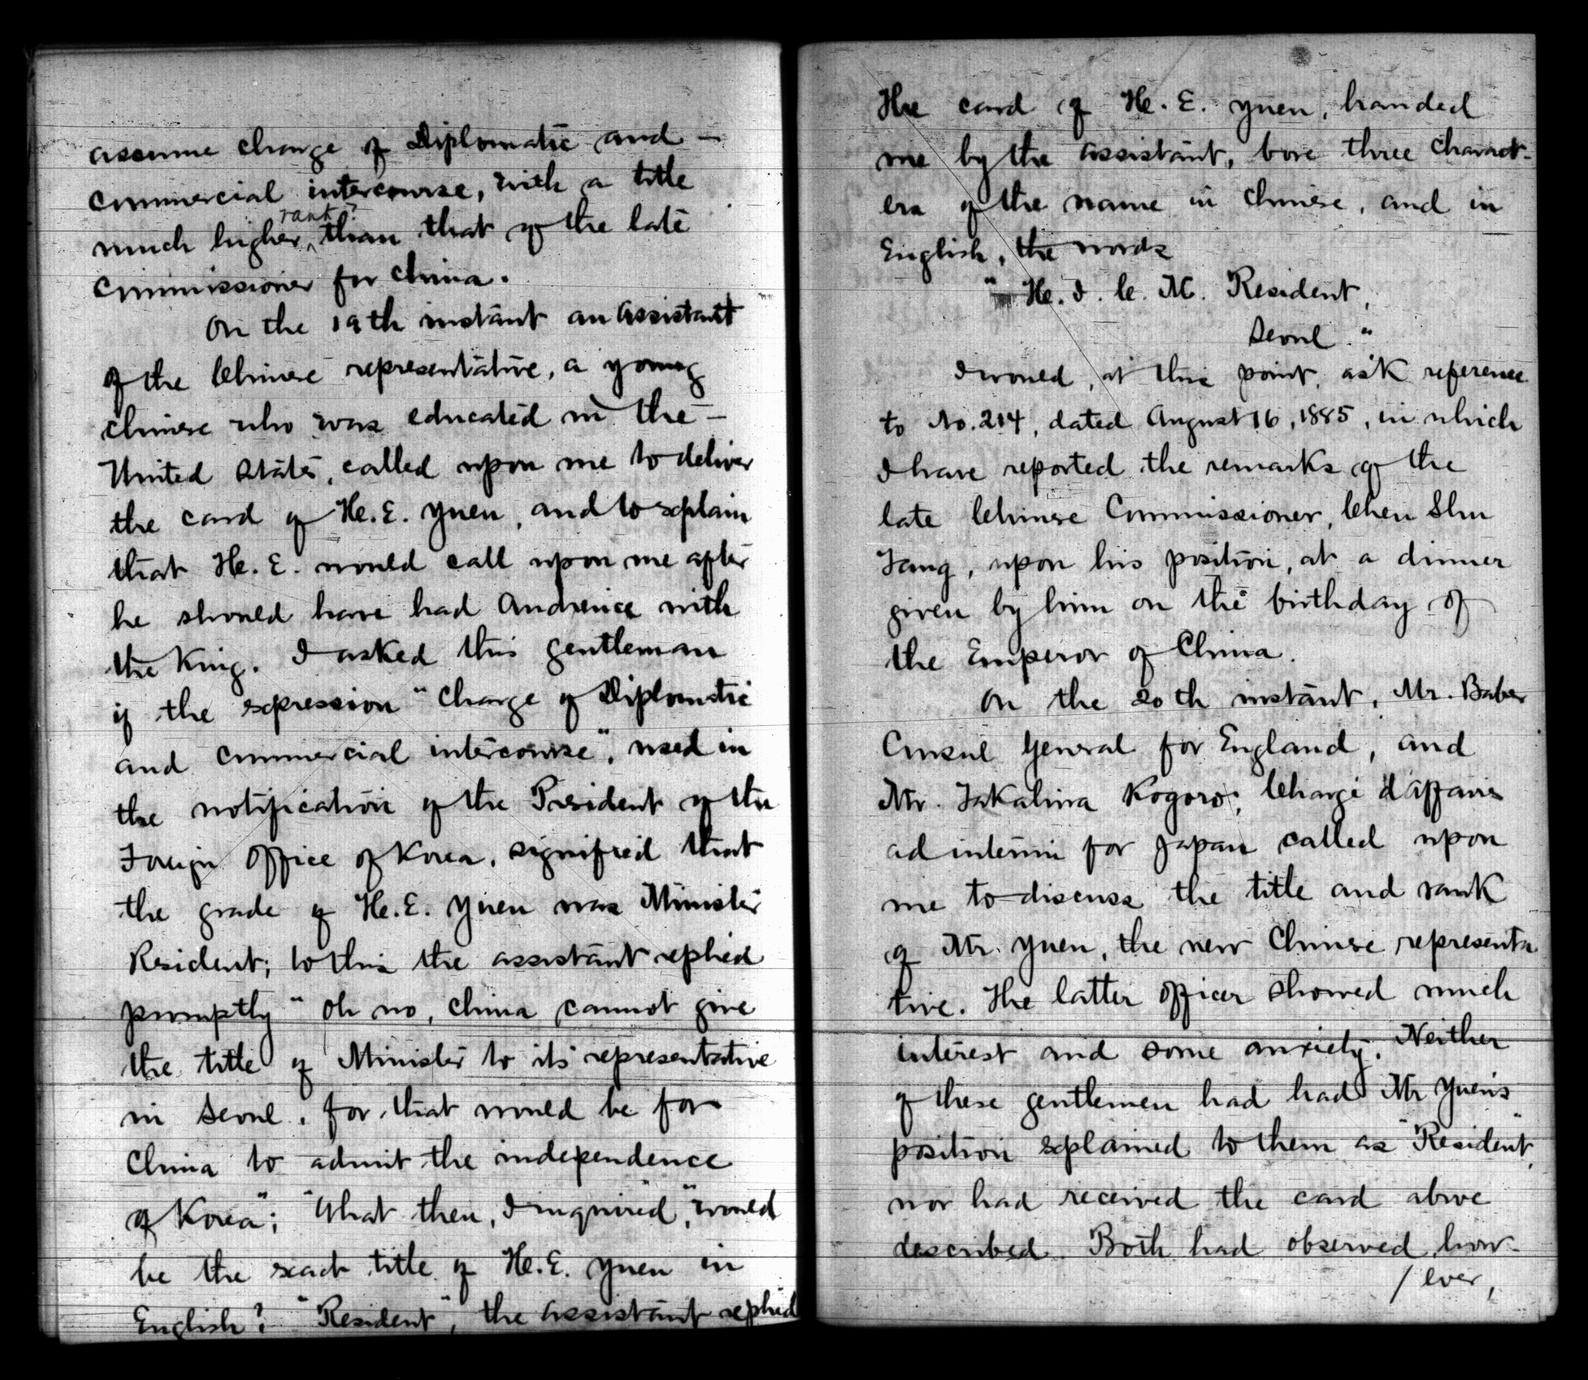 assume charge of Diplomatic and —
Commercial intercourse, with a title
rank?
much higher ‸ than that of the late
Commissioner for China.
On the 19th instant an Assistant
of the Chinese representative, a young
Chinese who was educated in the —
United States, called upon me to deliver
the card of H. E. Yuen, and to explain
that H. E. would call upon me after
he should have had Audience with
the King. I asked this gentleman
if the expression "Charge of Diplomatic
and Commercial intercourse", used in
the notification of the President of the
Foreign Office of Korea, signified that
the grade of H. E. Yuen was Minister
Resident; to this the assistant replied
promptly "Oh no, China cannot give
the title of Minister to its representative
in Seoul, for that would be for
China to admit the independence
of Korea"; "What then, I inquired", "would
be the exact title of H. E. Yuen in
English? "Resident", the assistant replied
The card of H. E. Yuen, handed
me by the assistant, bore three charact-
ers of the name in Chinese, and in
English, the words
" H. I. C. M. Resident,
Seoul."
I would, at this point, ask reference
to No. 214, dated August 16, 1885, in which
I have reported the remarks of the
late Chinese Commissioner, Chen Shu
Tang, upon his position, at a dinner
given by him on the birthday of
the Emperor of China.
On the 20th instant, Mr. Baber
Consul General for England, and
Mr. Takahira Kogoro, Chargé d'affaires
ad interim for Japan called upon
me to discuss the title and rank
of Mr. Yuen, the new Chinese representa
tive. The latter officer showed much
interest and some anxiety. Neither
of these gentlemen had had Mr Yuen's
position explained to them as "Resident",
nor had received the card above
described. Both had observed, how-
/ ever,